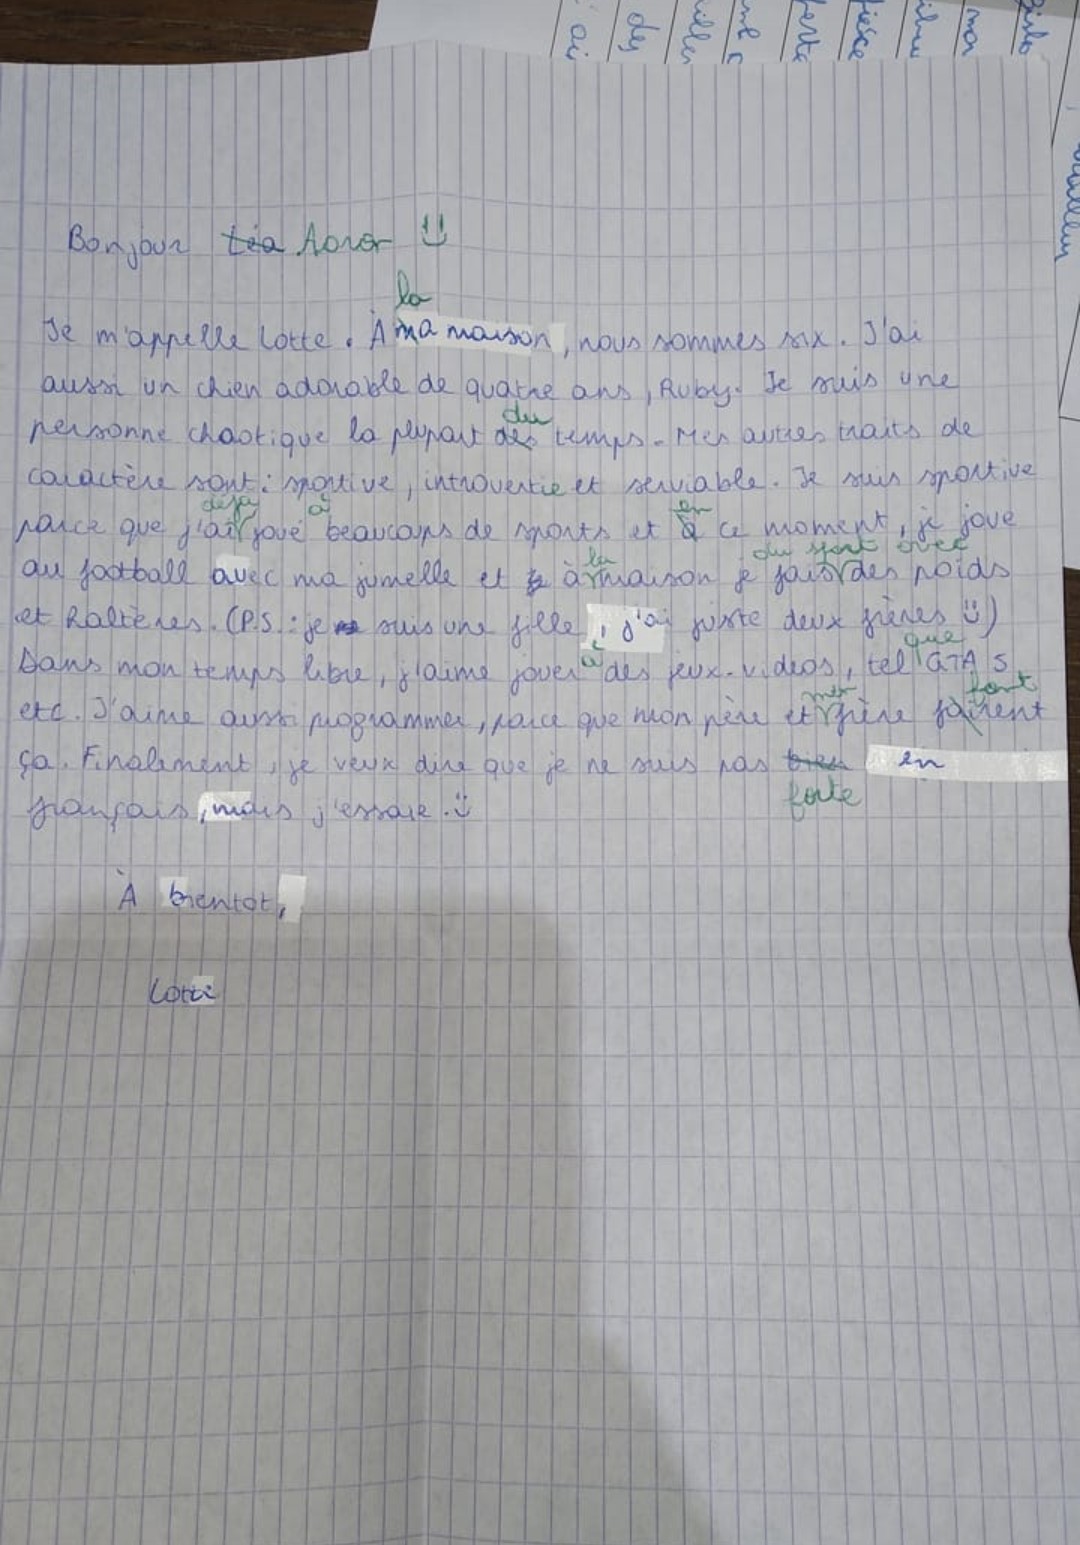 i ai
des
ille
fête
pièce
mon
Bonjour Léa Aoror
la
Je m'appelle Lotte. À ma maison, nous sommes six. J'ai
aussi un chien adorable de quatre ans, Ruby. Je suis une
du
personne chaotique la plupart des temps. Mes autres traits de
caractère sont: sportive, introvertie et serviable. Je suis sportive
déja à en
parce que j'ai joué beaucoups de sports et à ce moment, je joue
la du sport avec
au football avec ma jumelle et à maison je fais des poids
et haltères. (P.S.: je suis une fille, j'ai juste deux frères)
à que
Dans mon temps libre, j'aime jouer des jeux-videos, tel GTA 5
mon font
etc. J'aime aussi programmer, parce que mon père et frère fairent
ça. Finalement, je veux dire que je ne suis pas bien en
forte
français, mais j'essaie.
À bientot,
Lotte